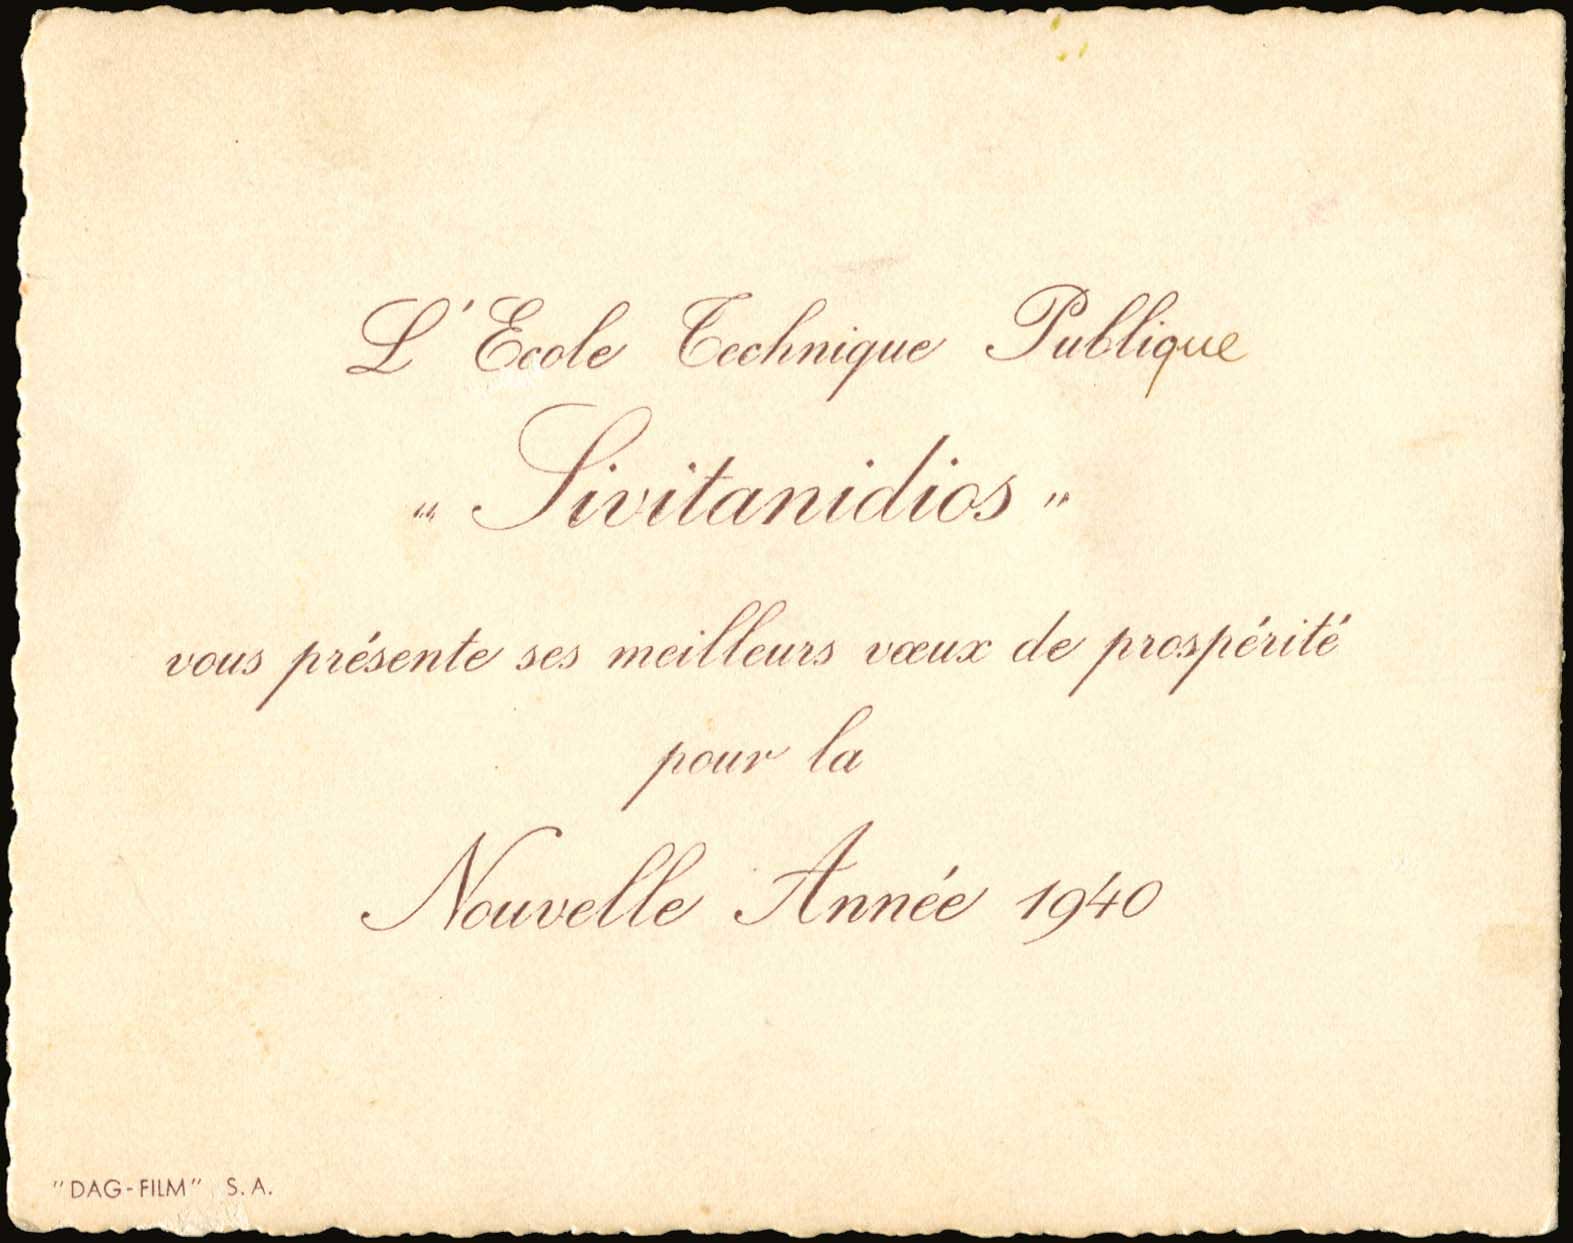 L'Ecole Technique Publique
„ Sivitanidios "
vous présente ses meilleurs vœux de prospérité
pour la
Nouvelle Année 1940
"DAG-FILM" S. A.